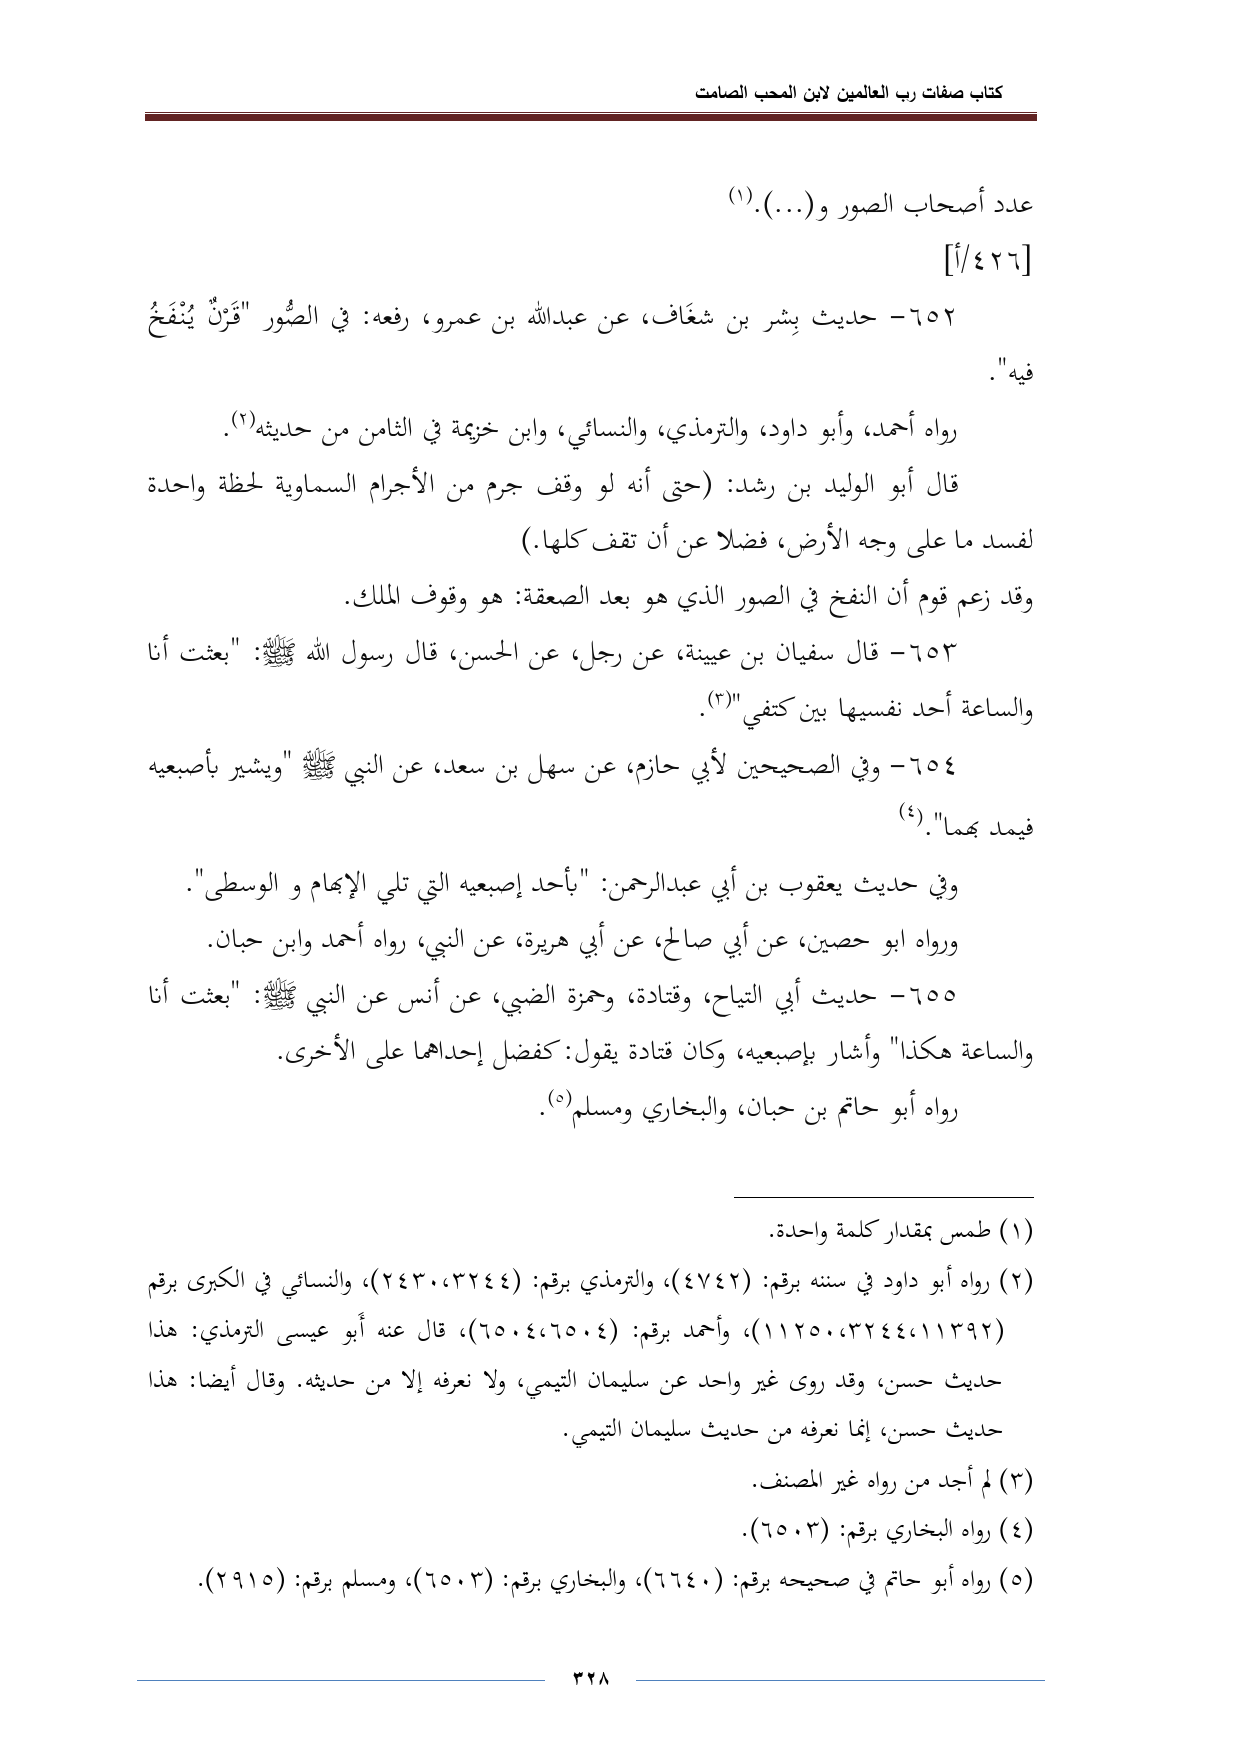 كتاب صفات رب العالمين لابن المحب الصامت
عدد أصحاب الصور و(...).(١)
[٤٢٦/أ]
٦٥٢- حديث بِشر بن شغَاف، عن عبدالله بن عمرو، رفعه: في الصُّور "قَرْنٌ يُنْفَخُ
فيه".
رواه أحمد، وأبو داود، والترمذي، والنسائي، وابن خزيمة في الثامن من حديثه(٢).
قال أبو الوليد بن رشد: (حتى أنه لو وقف جرم من الأجرام السماوية لحظة واحدة
لفسد ما على وجه الأرض، فضلا عن أن تقف كلها.)
وقد زعم قوم أن النفخ في الصور الذي هو بعد الصعقة: هو وقوف الملك.
٦٥٣- قال سفيان بن عيينة، عن رجل، عن الحسن، قال رسول الله ﷺ: "بعثت أنا
والساعة أحد نفسيها بين كتفي"(٣).
٦٥٤- وفي الصحيحين لأبي حازم، عن سهل بن سعد، عن النبي ﷺ "ويشير بأصبعيه
فيمد بهما".(٤)
وفي حديث يعقوب بن أبي عبدالرحمن: "بأحد إصبعيه التي تلي الإبهام و الوسطى".
ورواه ابو حصين، عن أبي صالح، عن أبي هريرة، عن النبي، رواه أحمد وابن حبان.
٦٥٥- حديث أبي التياح، وقتادة، وحمزة الضبي، عن أنس عن النبي ﷺ: "بعثت أنا
والساعة هكذا" وأشار بإصبعيه، وكان قتادة يقول: كفضل إحداهما على الأخرى.
رواه أبو حاتم بن حبان، والبخاري ومسلم(٥).
(١) طمس بمقدار كلمة واحدة.
(٢) رواه أبو داود في سننه برقم: (٤٧٤٢)، والترمذي برقم: (٢٤٣٠،٣٢٤٤)، والنسائي في الكبرى برقم
(١١٢٥٠،٣٢٤٤،١١٣٩٢)، وأحمد برقم: (٦٥٠٤،٦٥٠٤)، قال عنه أَبو عيسى الترمذي: هذا
حديث حسن، وقد روى غير واحد عن سليمان التيمي، ولا نعرفه إلا من حديثه. وقال أيضا: هذا
حديث حسن، إنما نعرفه من حديث سليمان التيمي.
(٣) لم أجد من رواه غير المصنف.
(٤) رواه البخاري برقم: (٦٥٠٣).
(٥) رواه أبو حاتم في صحيحه برقم: (٦٦٤٠)، والبخاري برقم: (٦٥٠٣)، ومسلم برقم: (٢٩١٥).
٣٢٨